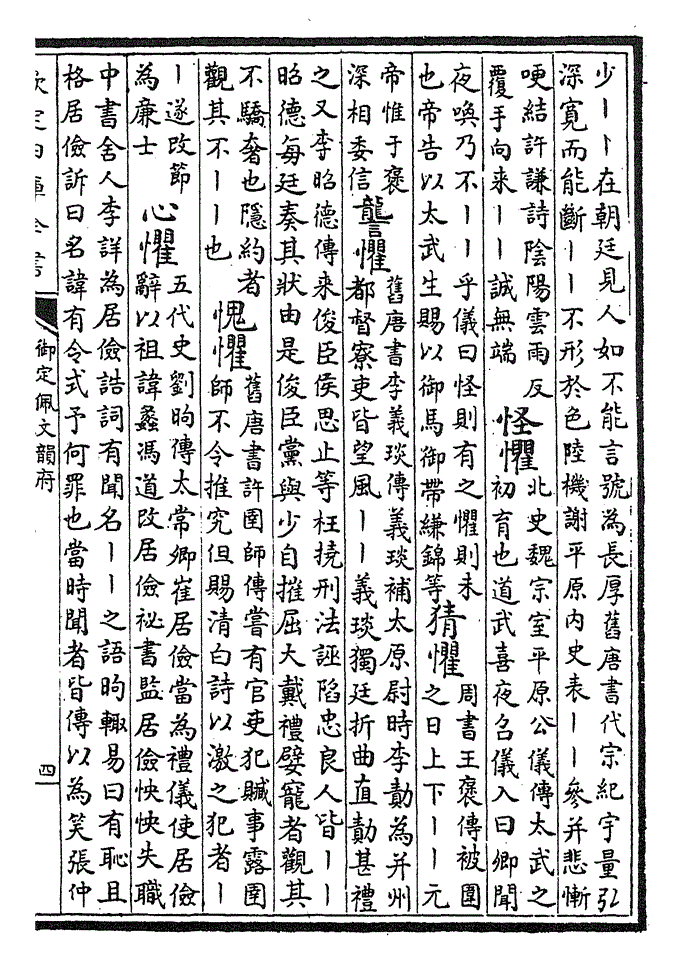 少丨丨在朝廷見人如不能言號為長厚舊唐書代宗紀宇量弘
深寛而能斷丨丨不形於色陸機謝平原内史表丨丨參并悲慚
哽結許謙詩陰陽雲雨反
覆手向來丨丨誠無端
怪懼
北史魏宗室平原公儀傳太武之
初育也道武喜夜召儀入曰卿聞
夜喚乃不丨丨乎儀曰怪則有之懼則未
也帝告以太武生賜以御馬御帶縑錦等
猜懼
周書王褒傳被圍
之日上下丨丨元
帝惟于褒
深相委信
讋懼
舊唐書李義琰傳義琰補太原尉時李勣為并州
都督寮吏皆望風丨丨義琰獨廷折曲直勣甚禮
之又李昭德傳来俊臣侯思止等枉撓刑法誣陷忠良人皆丨丨
昭德每廷奏其狀由是俊臣黨與少自摧屈大戴禮嬖寵者觀其
不驕奢也隱約者
觀其不丨丨也
愧懼
舊唐書許圉師傳嘗有官吏犯贓事露圉
師不令推究但賜清白詩以激之犯者丨
丨遂改節
為廉士
心懼
五代史劉昫傳太常卿崔居儉當為禮儀使居儉
辭以祖諱蠡馮道改居儉祕書監居儉怏怏失職
中書舍人李詳為居儉誥詞有聞名丨丨之語昫輙易曰有恥且
格居儉訴曰名諱有令式予何罪也當時聞者皆傳以為笑張仲
欽定四庫全書
御定佩文韻府
四